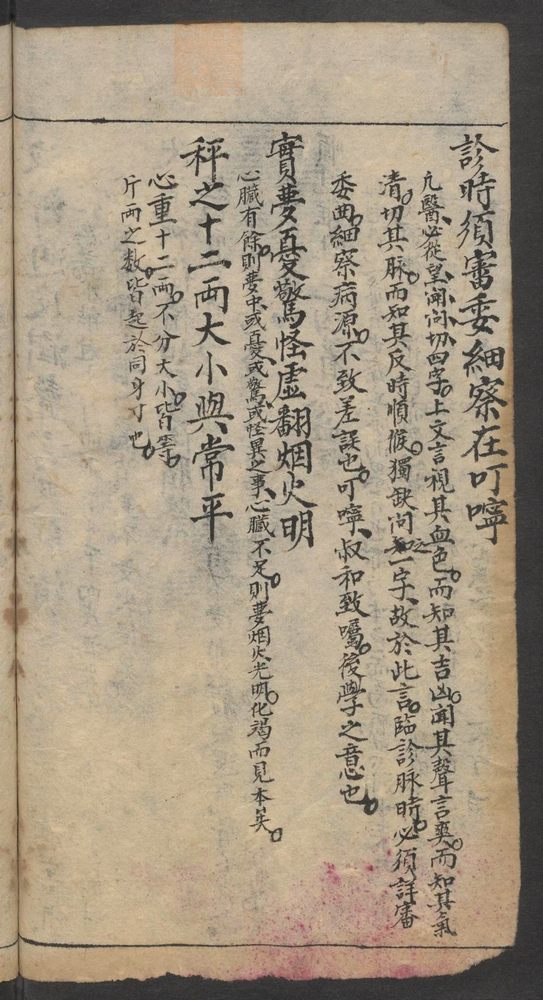 診時須審委細察在叮嚀
凡醫必從望聞問切四字。上文言視其血色。而知其吉凶。聞其聲言奕。而知其氣
清。切其脉。而知其反時順候。獨缺問之一字、故於此言。臨診脉時。必須詳審
委曲細察病源。不致差誤也。叮嚀、叔和致囑。後學之意也。
實夢憂驚怪虛翻烟火明
心臟有餘。則夢中或憂、或驚、或怪異之事、心臟不足。則夢烟火光明。化褐而見本矣。
秤之十二両大小與常平
心重十二両。不分大小。皆準。
斤両之数。皆起於同身寸也。